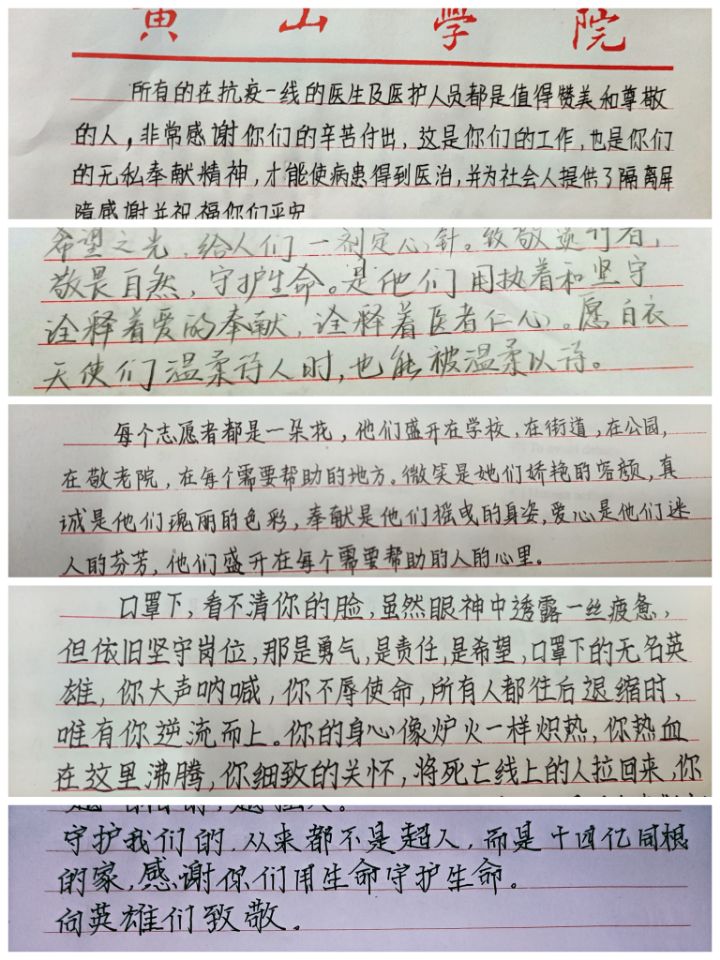 黄山学院
所有的在抗疫一线的医生及医护人员都是值得赞美和尊敬
的人，非常感谢你们的辛苦付出，这是你们的工作，也是你们
的无私奉献精神，才能使病患得到医治，并为社会人提供了隔离屏
障感谢并祝福你们平安
希望之光，给人们一剂定心针。致敬逆行者，
敬畏自然，守护生命。是他们用执着和坚守
诠释着爱的奉献，诠释着医者仁心。愿白衣
天使们温柔待人时，也能被温柔以待。
每个志愿者都是一朵花，他们盛开在学校，在街道，在公园，
在敬老院，在每个需要帮助的地方。微笑是她们娇艳的容颜，真
诚是他们瑰丽的色彩，奉献是他们摇曳的身姿，爱心是他们迷
人的芬芳，他们盛开在每个需要帮助的人的心里。
口罩下，看不清你的脸，虽然眼神中透露一丝疲惫，
但依旧坚守岗位，那是勇气，是责任，是希望，口罩下的无名英
雄，你大声呐喊，你不辱使命，所有人都往后退缩时，
唯有你逆流而上。你的身心像炉火一样炽热，你热血
在这里沸腾，你细致的关怀，将死亡线上的人拉回来，你
守护我们的，从来都不是超人，而是十四亿同根
的家，感谢你们用生命守护生命。
向英雄们致敬。